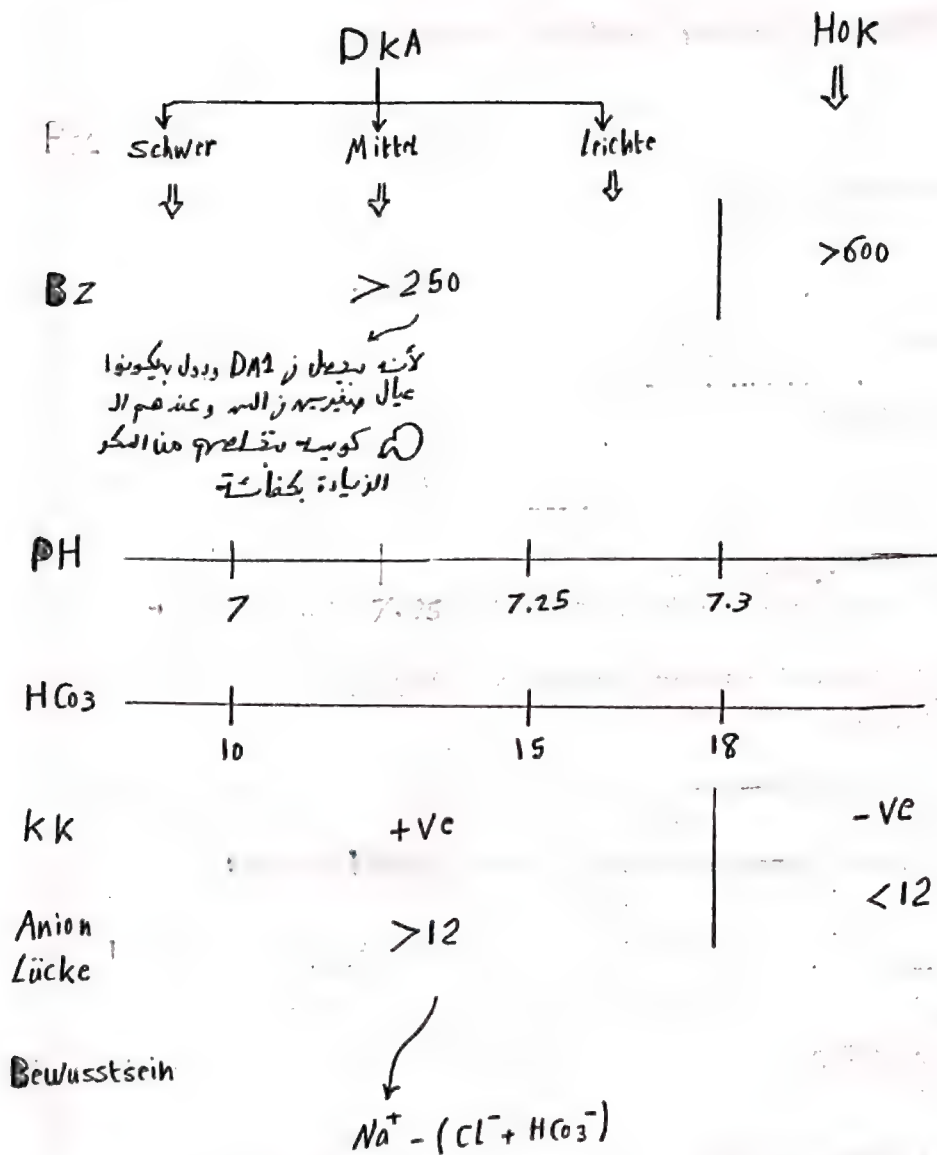 DKA HoK
schwer Mittel leichte
BZ > 250 >600
لأنه بتحصل في DM1 ودول بيكونوا
عيال صغيرين في السن وعندهم الـ
كويسة بتخلص من السكر
الزيادة بكفائة
PH
7 7.25 7.3
HCo3
10 15 18
KK +ve -ve
Anion >12 <12
Lücke
Bewusstsein
Na⁺ - (Cl⁻ + HCo3⁻)